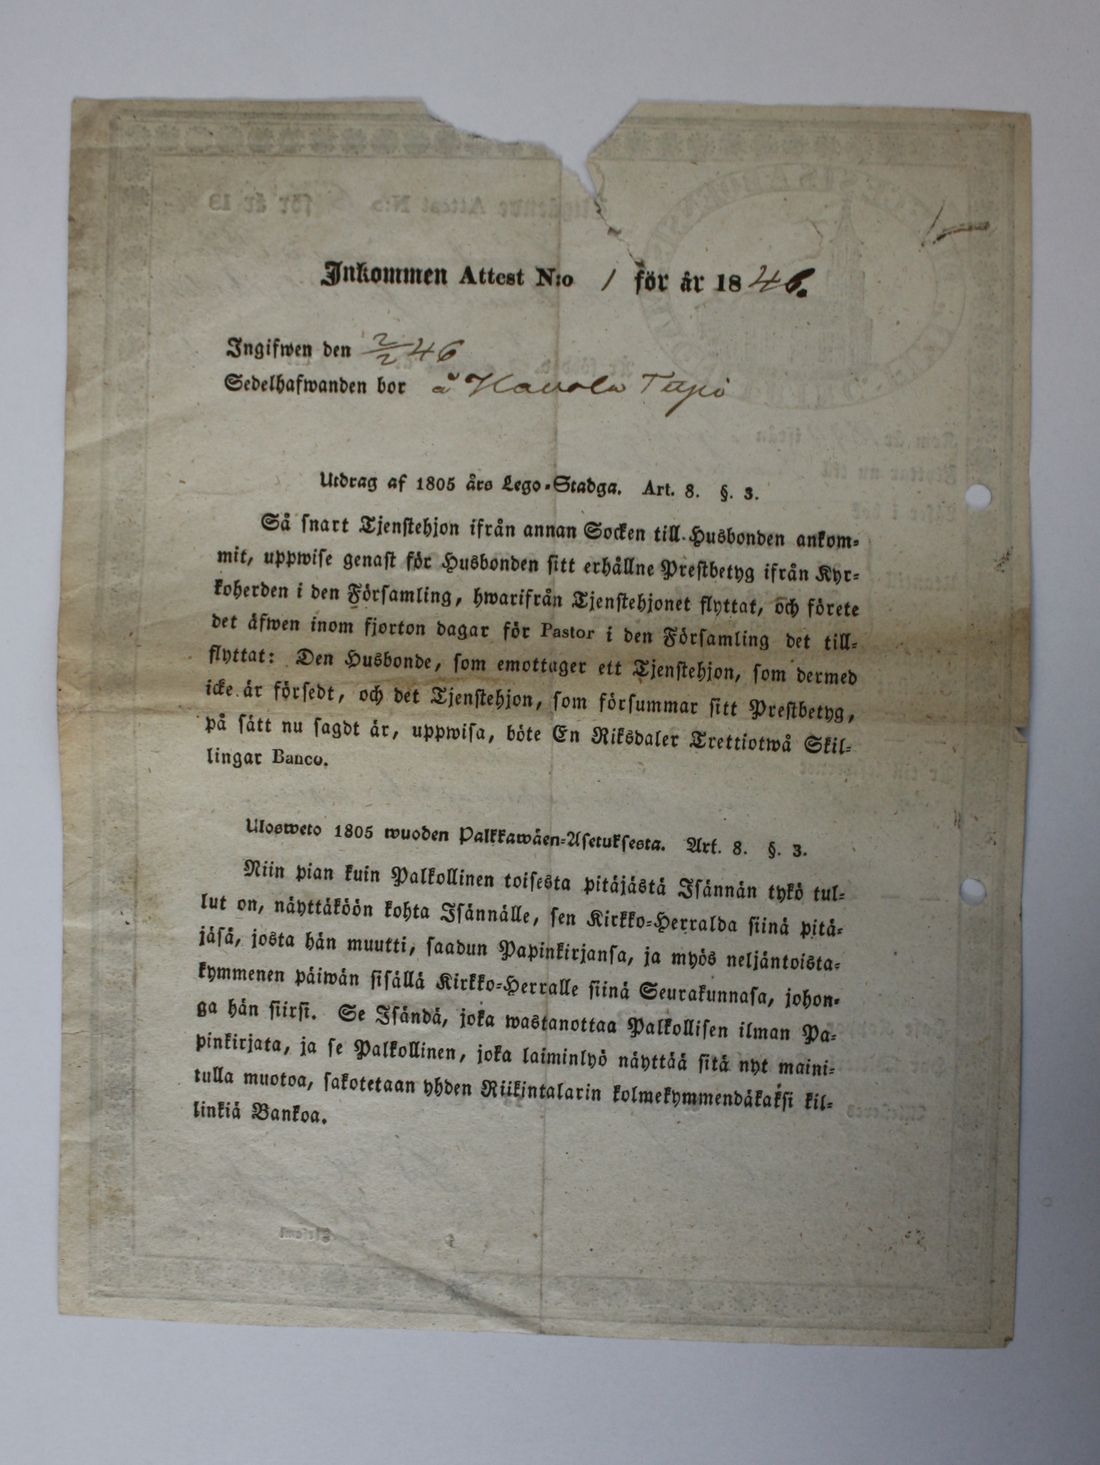 Inkommen Attest N:o 1 för år 1846.
Ingifwen den 2/2 46
Sedelhafwanden bor å
Utdrag af 1805 års Lego-Stadga. Art. 8. §. 3.
Så snart Tjenstehjon ifrån annan Socken till Husbonden ankom-
mit, uppwise genast för Husbonden sitt erhållne Prestbetyg ifrån Kyr-
koherden i den Församling, hwarifrån Tjenstehjonet flyttat, och förete
det äfwen inom fjorton dagar för Pastor i den Församling det till-
flyttat: Den Husbonde, som emottager ett Tjenstehjon, som dermed
icke är försedt, och det Tjenstehjon, som försummar sitt Prestbetyg,
på sätt nu sagdt är, uppwisa, böte En Riksdaler Trettiotwå Skil-
lingar Banco.
Ulosweto 1805 wuoden Palkkawäen-Asetuksesta. Art. 8. §. 3.
Niin pian kuin Palkollinen toisesta pitäjästä Isännän tykö tul-
lut on, näyttäköön kohta Isännälle, sen Kirkko-Herralda siinä pitä-
jäsä, josta hän muutti, saadun Papinkirjansa, ja myös neljäntoista-
kymmenen päiwän sisällä Kirkko-Herralle siinä Seurakunnasa, johon-
ga hän siirsi. Se Isändä, joka wastanottaa Palkollisen ilman Pa-
pinkirjata, ja se Palkollinen, joka laiminlyö näyttää sitä nyt maini-
tulla muotoa, sakotetaan yhden Riikintalarin kolmekymmendäkaksi kil-
linkiä Bankoa.